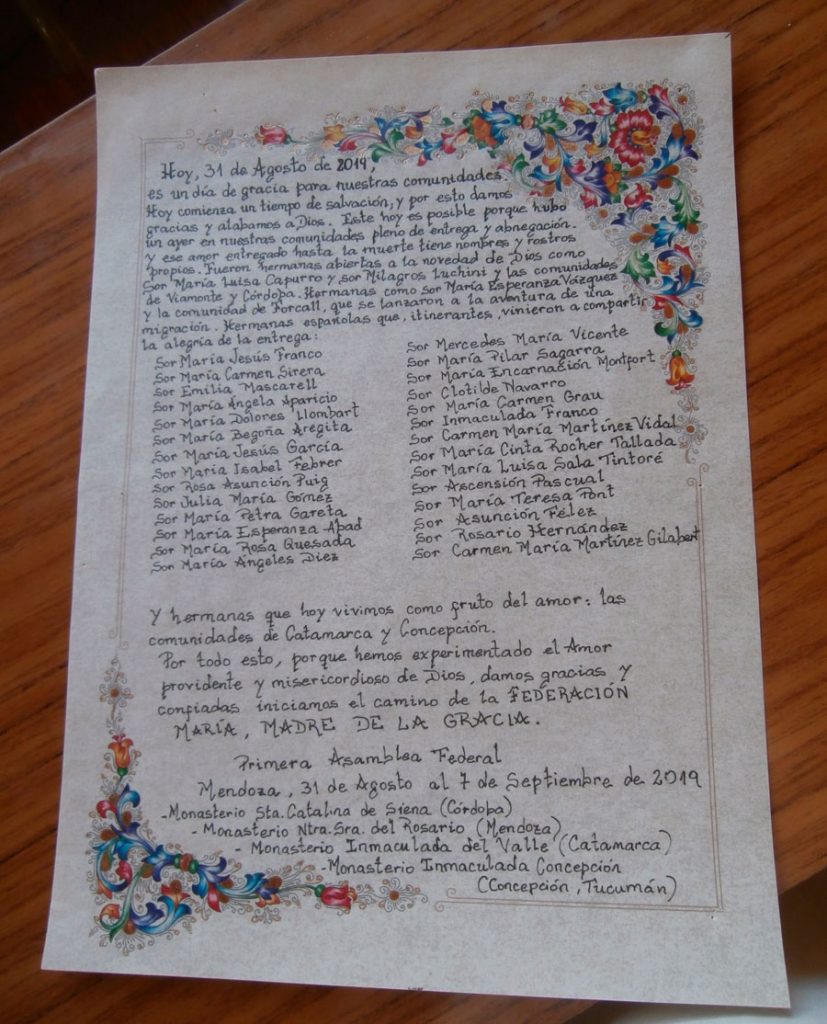 Hoy, 31 de Agosto de 2019,
es un día de gracia para nuestras comunidades.
Hoy comienza un tiempo de salvación, y por esto damos
gracias y alabamos a Dios. Este hoy es posible porque hubo
un ayer en nuestras comunidades pleno de entrega y abnegación.
Y ese amor entregado hasta la muerte tiene nombres y rostros
propios. Fueron hermanas abiertas a la novedad de Dios como
Sor María Luisa Capurro y sor Milagros Luchini y las comunidades
de Viamonte y Córdoba. Hermanas como Sor María Esperanza Vázquez
y la comunidad de Forcall, que se lanzaron a la aventura de una
migración. Hermanas españolas que, itinerantes, vinieron a compartir
la alegría de la entrega:
Sor María Jesús Franco
Sor María Carmen Sirera
Sor Emilia Mascarell
Sor María Ángela Aparicio
Sor María Dolores Llombart
Sor María Begoña Aregita
Sor María Jesús García
Sor María Isabel Febrer
Sor Rosa Asunción Puig
Sor Julia María Gómez
Sor María Petra Gareta
Sor María Esperanza Abad
Sor María Rosa Quesada
Sor María Ángeles Diez
Sor Mercedes María Vicente
Sor María Pilar Sagarra
Sor María Encarnación Montfort
Sor Clotilde Navarro
Sor María Carmen Grau
Sor Inmaculada Franco
Sor Carmen María Martínez Vidal
Sor María Cinta Rocher Tallada
Sor María Luisa Sala Tintoré
Sor Ascensión Pascual
Sor María Teresa Pont
Sor Asunción Félez
Sor Rosario Hernández
Sor Carmen María Martínez Gilabert
Y hermanas que hoy vivimos como fruto del amor: las
comunidades de Catamarca y Concepción.
Por todo esto, porque hemos experimentado el Amor
providente y misericordioso de Dios, damos gracias y
confiadas iniciamos el camino de la FEDERACIÓN
MARÍA, MADRE DE LA GRACIA.
Primera Asamblea Federal
Mendoza, 31 de Agosto al 7 de Septiembre de 2019
-Monasterio Sta. Catalina de Siena (Córdoba)
- Monasterio Ntra. Sra. del Rosario (Mendoza)
- Monasterio Inmaculada del Valle (Catamarca)
-Monasterio Inmaculada Concepción
(Concepción, Tucumán)